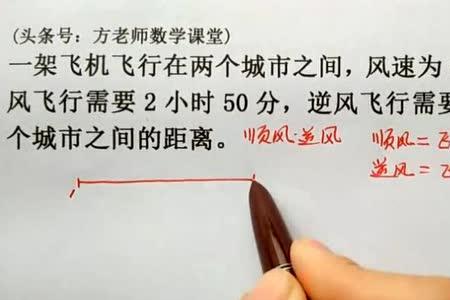 (头条号：方老师数学课堂)
一架飞机飞行在两个城市之间，风速为
风飞行需要2小时50分，逆风飞行需要
个城市之间的距离。 顺风·逆风 顺风=
逆风=